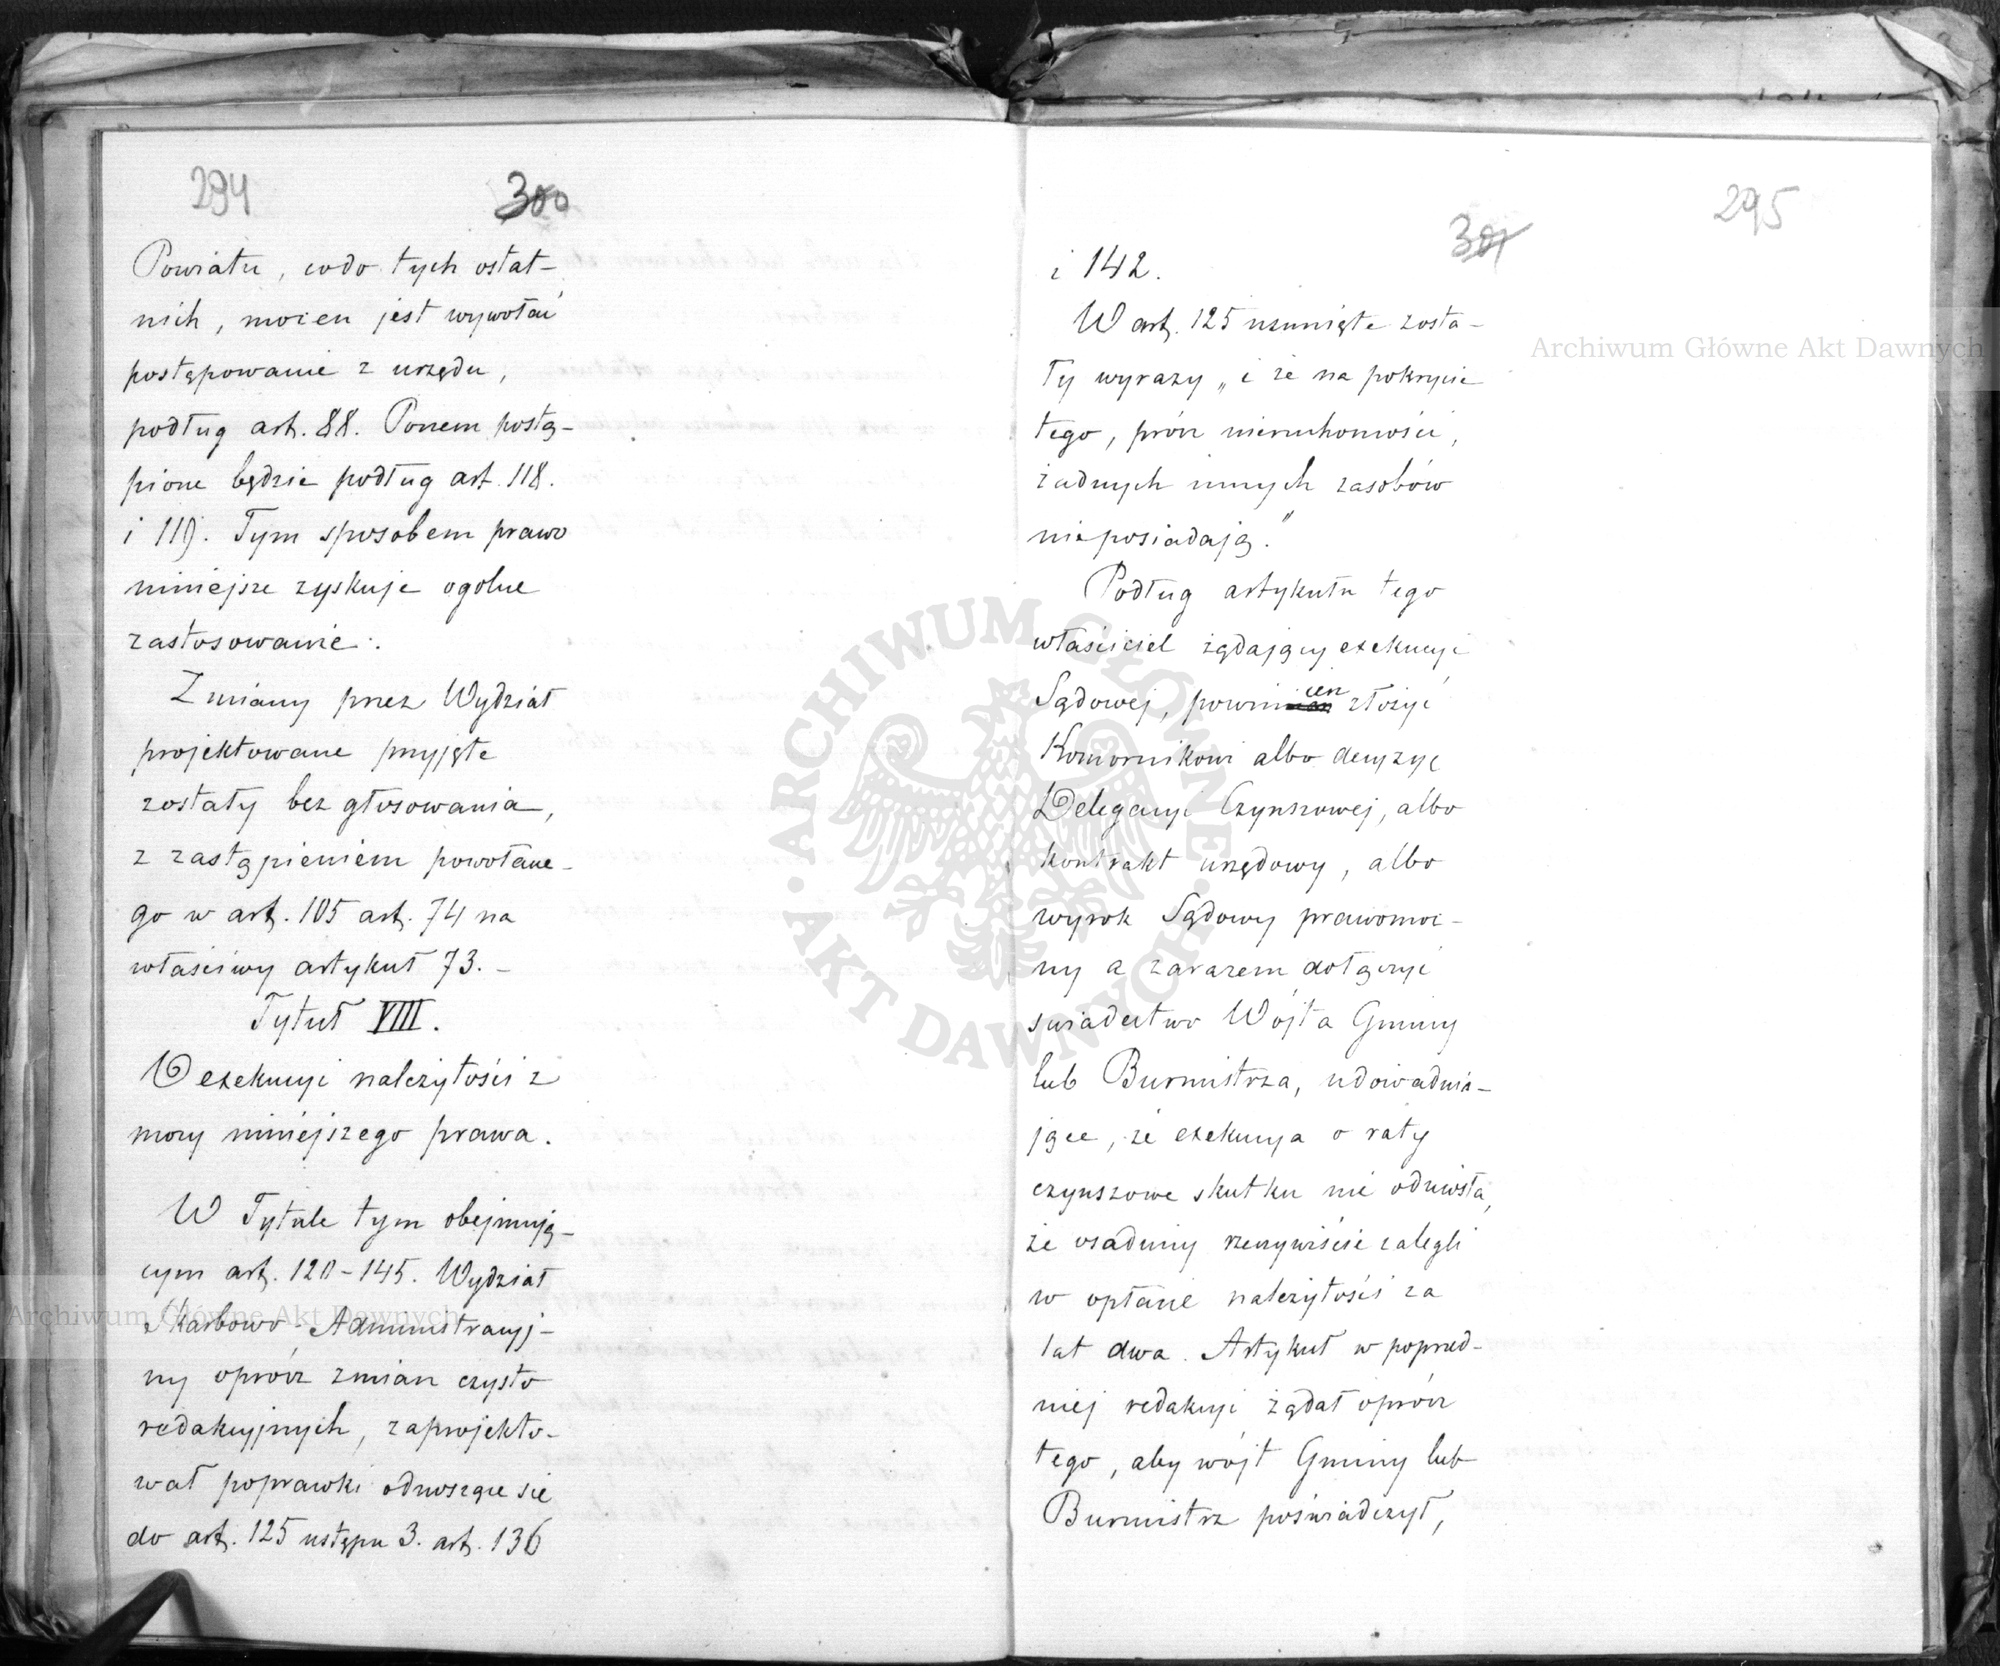 294
300
Powiatu, codo tych ostat-
nich, mocen jest wywołać
postępowanie z urzędu,
podług art. 88. Poczem postą-
pione będzie podług art. 118.
i 119. Tym sposobem prawo
niniejsze zyskuje ogolne
zastosowanie.
Zmiany przez Wydział
projektowane przyjęte
zostały bez głosowania,
z zastąpieniem powołane-
go w art. 105 art. 74 na
właściwy artykuł 73. -
Tytuł VIII.
O exekucyi należytości z
mocy niniejszego prawa.
W Tytule tym obejmują-
cym art. 120-145. Wydział
Skarbowo-Administracyj-
ny oprócz zmian czysto
redakcyjnych, zaprojekto-
wał poprawki odnoszące się
do art. 125 ustępu 3. art. 136
295
301
i 142.
W art. 125 usunięte zosta-
ły wyrazy „i że na pokrycie
tego, prócz nieruchomości,
żadnych innych zasobów
nieposiadają."
Podług artykułu tego
właściciel żądający exekucyi
Sądowej, powinien złożyć
Komornikowi albo decyzyę
Delegacyi Czynszowej, albo
kontrakt urzędowy, albo
wyrok Sądowy prawomoc-
ny a zarazem dołączyć
swiadectwo Wójta Gminy
lub Burmistrza, udowadnia-
jące, że exekucya o raty
czynszowe skutku nie odniosła,
że osadnicy rzeczywiście zalegli
w opłacie należytości za
lat dwa. Artykuł w poprzed-
niej redakcyi żądał oprócz
tego, aby wójt Gminy lub
Burmistrz poświadczył,
Archiwum Główne Akt Dawnych
Archiwum Główne Akt Dawnych
ARCHIWUM GŁÓWNE AKT DAWNYCH